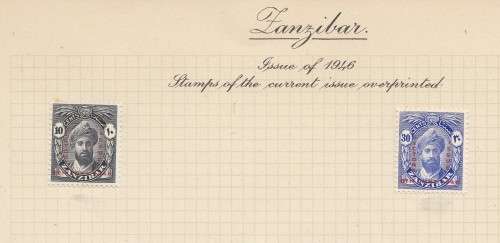 Zanzibar.
Issue of 1946
Stamps of the current issue overprinted
10 ١٠
ZANZIBAR
30 ٣٠
ZANZIBAR